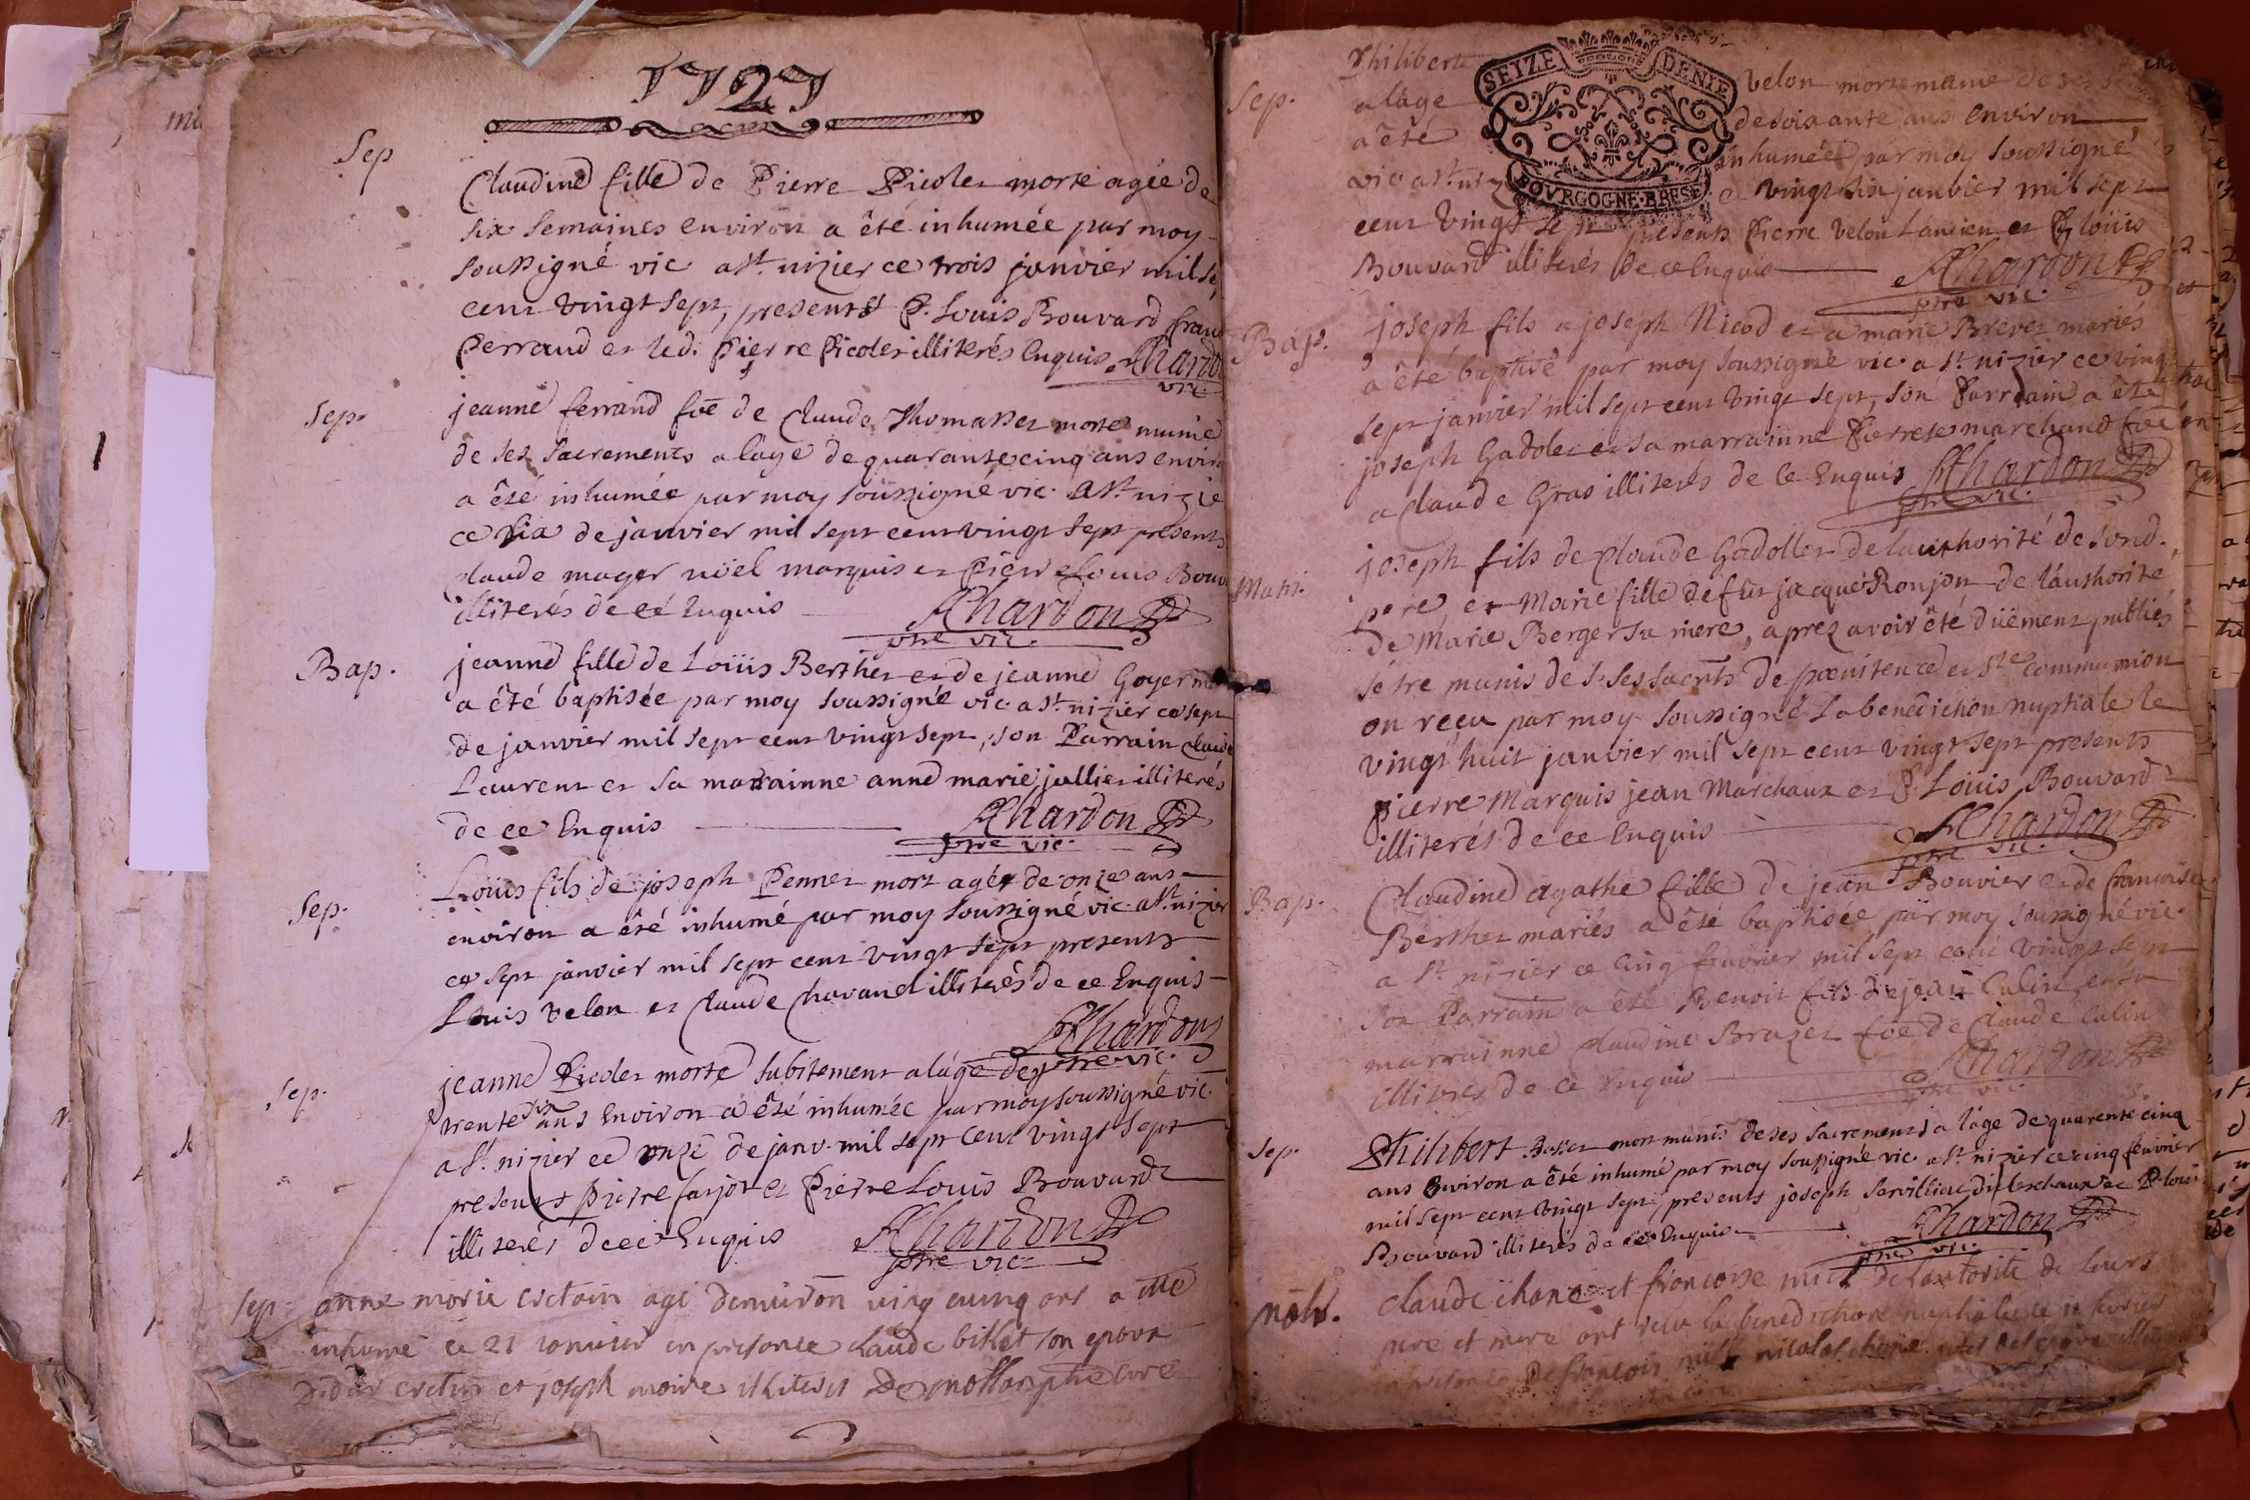 1727
Sep
Claudine fille de Pierre Picolet morte agée de
six semaines environ a été inhumée par moy
soussigné vic a St. nizier ce trois janvier mil se
cent vingt sept, presents P. Louis Bouvard
Perraud et led. Pierre Picolet illiterés Enquis Chardo
vic.
Sep.
jeanne ferrand foe de Claude Thomasset morte munie
de ses sacrements a l'age de quarante cinq ans envir
a été inhumée par moy soussigné vic. a St. nizie
ce six de janvier mil sept cent vingt sept presents
Claude moger noël marquis et Pierre Louis Bouv
illiterés de ce Enquis Chardon
ptre vic.
Bap.
jeanne fille de Loüis Berthet et de jeanne Goyer
a été baptisée par moy soussigné vic. a St. nizier ce sept
de janvier mil sept cent vingt sept, son Parrain Claude
Laurent et sa marrainne anne marie jullier illiterés
de ce Enquis Chardon
ptre vic.
Sep.
Loüis fils de joseph Pennet mort agé de onze ans
environ a été inhumé par moy soussigné vic. a St. nizier
ce sept janvier mil sept cent vingt sept presents
Louis Velon et Claude Chavanel illiterés de ce Enquis
Chardon
ptre vic.
Sep.
jeanne Picolet morte subitement a l'áge de
trente six ans Environ a été inhumée par moy soussigné vic.
a St. nizier ce onze de janv. mil sept cent vingt sept
presents Pierre farjot et Pierre Louis Bouvard
illiterés de ce Enquis Chardon
ptre vic.
Sep. anne marie cretain agé denviron ving cinq ans a été
inhumé ce 21 ianvier en presence claude billet son epoux
cretin et joseph moire illiteres curé
Sep.
Philibert Velon mort munie de ses
a l'age de soixante ans environ
a été inhumée par moy soussigné
vic a St. niz ce vingt six janvier mil sept
cent vingt sept presents Pierre Velon L'ancien et P. loüis
Bouvard illiterés de ce Enquis Chardon
ptre vic.
Bap.
joseph fils a joseph Nicod et a marie Brevet mariés
a été baptisé par moy soussigné vic. a St. nizier ce ving
sept janvier mil sept cent vingt sept, son Parrain a été
joseph Gadolet et sa marrainne Pierrete marchand foe
a claude Gras illiterés de ce Enquis Chardon
ptre vic.
Matri.
joseph fils de Claude Gadollet de l'authorité de sond.
pere et Marie fille de fut jacque Ronjon de l'authorité
de Marie Berger sa mere, aprez avoir été düement publiés
sétre munis de s. ses sacrts de poenitence et ste communion
on reçu par moy soussigné La benediction nuptiale le
vingt huit janvier mil sept cent vingt sept presents
pierre Marquis jean Marchaux et P. Louis Bouvard
illiterés de ce Enquis Chardon
ptre vic.
Bap.
Claudine agathe fille de jean Bouvier et de francoise
Berthet mariés a été baptisée par moy soussigné vic.
a St. nizier ce cinq feuvrier mil sept cent vingt sept
son Parrain a été Benoit fils de jean Culin et sa
marrainne claudine Brazet foe de Claude Culin
illiteres de ce Enquis Chardon
ptre vic.
Sep.
Philibert Bosset mort munis de ses sacrements a l'áge de quarente cinq
ans Environ a été inhumé par moy soussigné vic. a St. nizier ce cinq feuvrier
mil sept cent vingt sept, presents joseph P. loüis
Bouvard illiterés de ce Enquis Chardon
ptre vic.
claude et francoise de lautorite de leurs
pere et mere ont recu la benediction nuptiale
SEIZE DENIE
BOVRGOGNE·BRESE